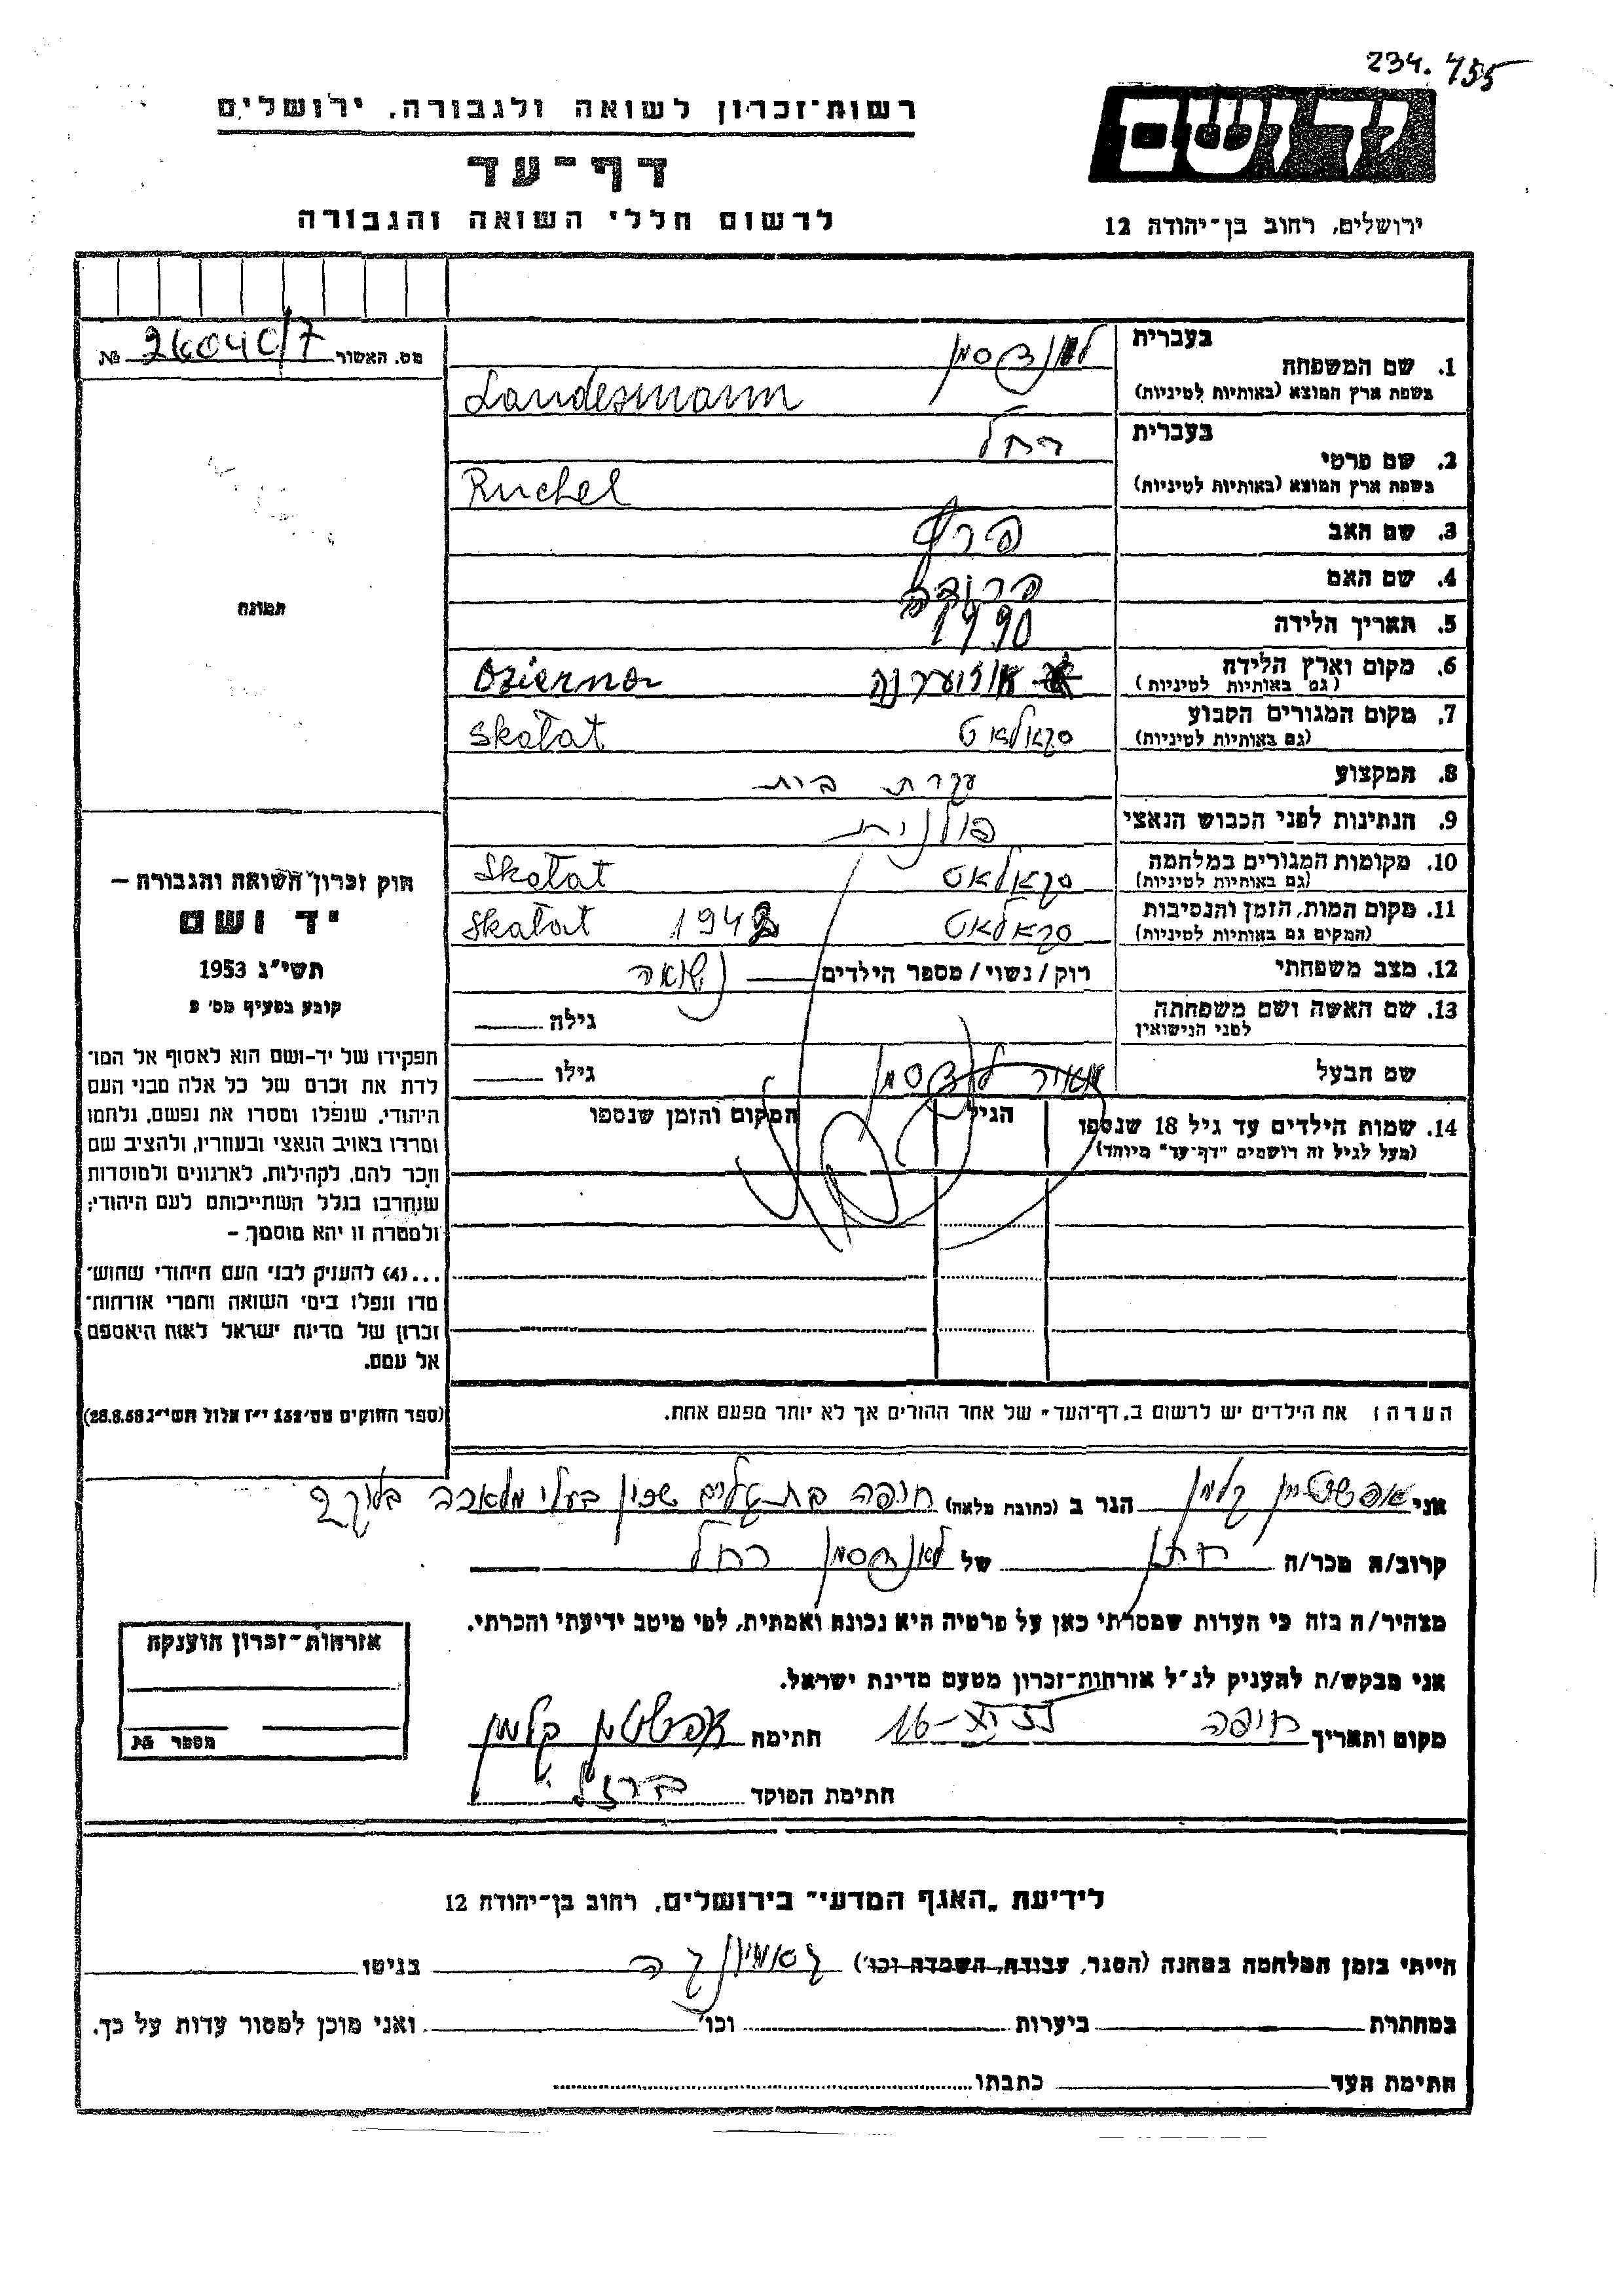 234.455
יד ושם
רשות־זכרון לשואה ולגבורה, ירושלים
דף־עד
לרשום חללי השואה והגבורה
ירושלים, רחוב בן־יהודה 12
מס. האשור 26040/7 №
תמונה
חוק זכרון השואה והגבורה –
יד ושם
תשי״ג 1953
קובע בסעיף מס׳ 2
תפקידו של יד-ושם הוא לאסוף אל המו־
לדת את זכרם של כל אלה מבני העם
היהודי, שנפלו ומסרו את נפשם, נלחמו
ומרדו באויב הנאצי ובעוזריו, ולהציב שם
וזכר להם, לקהילות, לארגונים ולמוסדות
שנחרבו בגלל השתייכותם לעם היהודי;
ולמטרה זו יהא מוסמך –
...(4) להעניק לבני העם היהודי שהוש־
מדו ונפלו בימי השואה והמרי אזרחות־
זכרון של מדינת ישראל לאות היאספם
אל עמם.
(ספר החוקים מס׳ 132 י״ז אלול תשי״ג 28.8.53)
בעברית לאנדסמן
1. שם המשפחה
בשפת ארץ המוצא (באותיות לטיניות) Landesmann
בעברית רחל
2. שם פרטי
בשפת ארץ המוצא (באותיות לטיניות) Ruchel
3. שם האב
4. שם האם
5. תאריך הלידה 1890
6. מקום וארץ הלידה Ozierna
(גם באותיות לטיניות)
7. מקום המגורים הקבוע סקאלאט Skałat
(גם באותיות לטיניות)
8. המקצוע עקרת בית
9. הנתינות לפני הכבוש הנאצי פולנית
10. מקומות המגורים במלחמה סקאלאט Skałat
(גם באותיות לטיניות)
11. מקום המות, הזמן והנסיבות סקאלאט 1942 Skałat
(המקום גם באותיות לטיניות)
12. מצב משפחתי רוק / נשוי / מספר הילדים נשואה
13. שם האשה ושם משפחתה גילה
לפני הנישואין
שם הבעל מאיר לנדסמן גילו
14. שמות הילדים עד גיל 18 שנספו הגיל המקום והזמן שנספו
(מעל לגיל זה רושמים "דף־עד" מיוחד)
הערה: את הילדים יש לרשום ב„דף־העד״ של אחד ההורים אך לא יותר מפעם אחת.
אני אפשטיין קלמן הגר ב (כתובת מלאה) חיפה בת גלים שכון בעלי מלאכה בלוק
קרוב/ה מכר/ה חתן של לאנדסמן רחל
מצהיר/ה בזה כי העדות שמסרתי כאן על פרטיה היא נכונה ואמתית, לפי מיטב ידיעתי והכרתי.
אני מבקש/ת להעניק לנ״ל אזרחות־זכרון מטעם מדינת ישראל.
מקום ותאריך חיפה חתימה אפשטיין קלמן
חתימת הפוקד ברזלי
אזרחות־זכרון הוענקה
מספר №
לידיעת „האגף המדעי״ בירושלים, רחוב בן־יהודה 12
הייתי בזמן המלחמה במחנה (הסגר, עבודה, השמדה וכו׳) בגיטו
במחתרת ביערות וכו׳ ואני מוכן למסור עדות על כך.
חתימת העד כתבתו